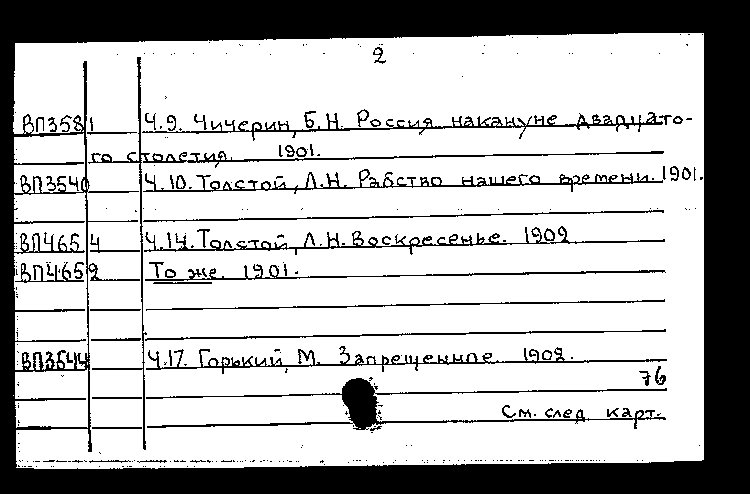 2
ВП3581 Ч.9. Чичерин, Б.Н. Россия накануне двадцато-
го столетия. 1901.
ВП3540 Ч.10. Толстой, Л.Н. Рабство нашего времени. 1901.
ВП4654 Ч.14. Толстой, Л.Н. Воскресенье. 1902
ВП4652 То же. 1901.
ВП3544 Ч.17. Горький, М. Запрещенные. 1902.
76
См. след карт.